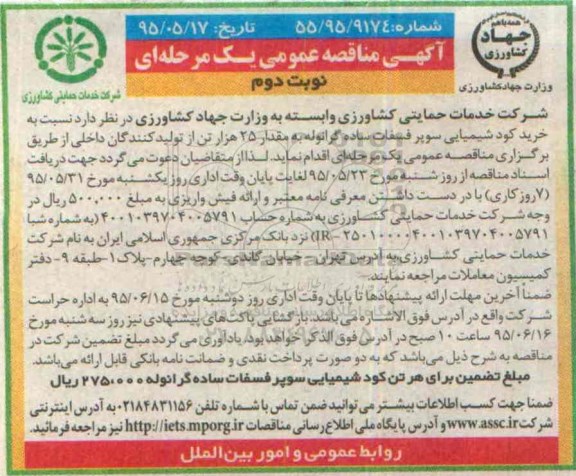 شماره: ۵۵/۹۵/۹۱۷۴
تاریخ: ۹۵/۰۵/۱۷
آگهی مناقصه عمومی یک مرحله‌ای
نوبت دوم
همه با هم
جهاد
کشاورزی
وزارت جهاد کشاورزی
شرکت خدمات حمایتی کشاورزی
شرکت خدمات حمایتی کشاورزی وابسته به وزارت جهاد کشاورزی در نظر دارد نسبت به
خرید کود شیمیایی سوپر فسفات ساده گرانوله به مقدار ۲۵ هزار تن از تولیدکنندگان داخلی از طریق
برگزاری مناقصه عمومی یک مرحله‌ای اقدام نماید. لذا از متقاضیان دعوت می‌گردد جهت دریافت
اسناد مناقصه از روز شنبه مورخ ۹۵/۰۵/۲۳ لغایت پایان وقت اداری روز یکشنبه مورخ ۹۵/۰۵/۳۱
(۷ روز کاری) با در دست داشتن معرفی نامه معتبر و ارائه فیش واریزی به مبلغ ۵۰۰,۰۰۰ ریال در
وجه شرکت خدمات حمایتی کشاورزی به شماره حساب ۴۰۰۱۰۳۹۷۰۴۰۰۵۷۹۱ (به شماره شبا
IR- ۲۵۰۱۰۰۰۰۴۰۰۱۰۳۹۷۰۴۰۰۵۷۹۱) نزد بانک مرکزی جمهوری اسلامی ایران به نام شرکت
خدمات حمایتی کشاورزی به آدرس تهران - خیابان گاندی - کوچه چهارم - پلاک ۱ - طبقه ۹ - دفتر
کمیسیون معاملات مراجعه نمایند.
ضمناً آخرین مهلت ارائه پیشنهادها تا پایان وقت اداری روز دوشنبه مورخ ۹۵/۰۶/۱۵ به اداره حراست
شرکت واقع در آدرس فوق الاشاره می باشد. بازگشایی پاکت‌های پیشنهادی نیز روز سه شنبه مورخ
۹۵/۰۶/۱۶ ساعت ۱۰ صبح در آدرس فوق الذکر خواهد بود. یادآوری می گردد مبلغ تضمین شرکت در
مناقصه به شرح ذیل می‌باشد که به دو صورت پرداخت نقدی و ضمانت نامه بانکی قابل ارائه می‌باشد.
مبلغ تضمین برای هر تن کود شیمیایی سوپر فسفات ساده گرانوله ۲۷۵۰۰۰ ریال
ضمنا جهت کسب اطلاعات بیشتر می توانید ضمن تماس با شماره تلفن ۰۲۱۸۴۸۳۱۱۵۶ به آدرس اینترنتی
شرکت www.assc.ir و آدرس پایگاه ملی اطلاع رسانی مناقصات http://iets.mporg.ir نیز مراجعه فرمائید.
روابط عمومی و امور بین الملل